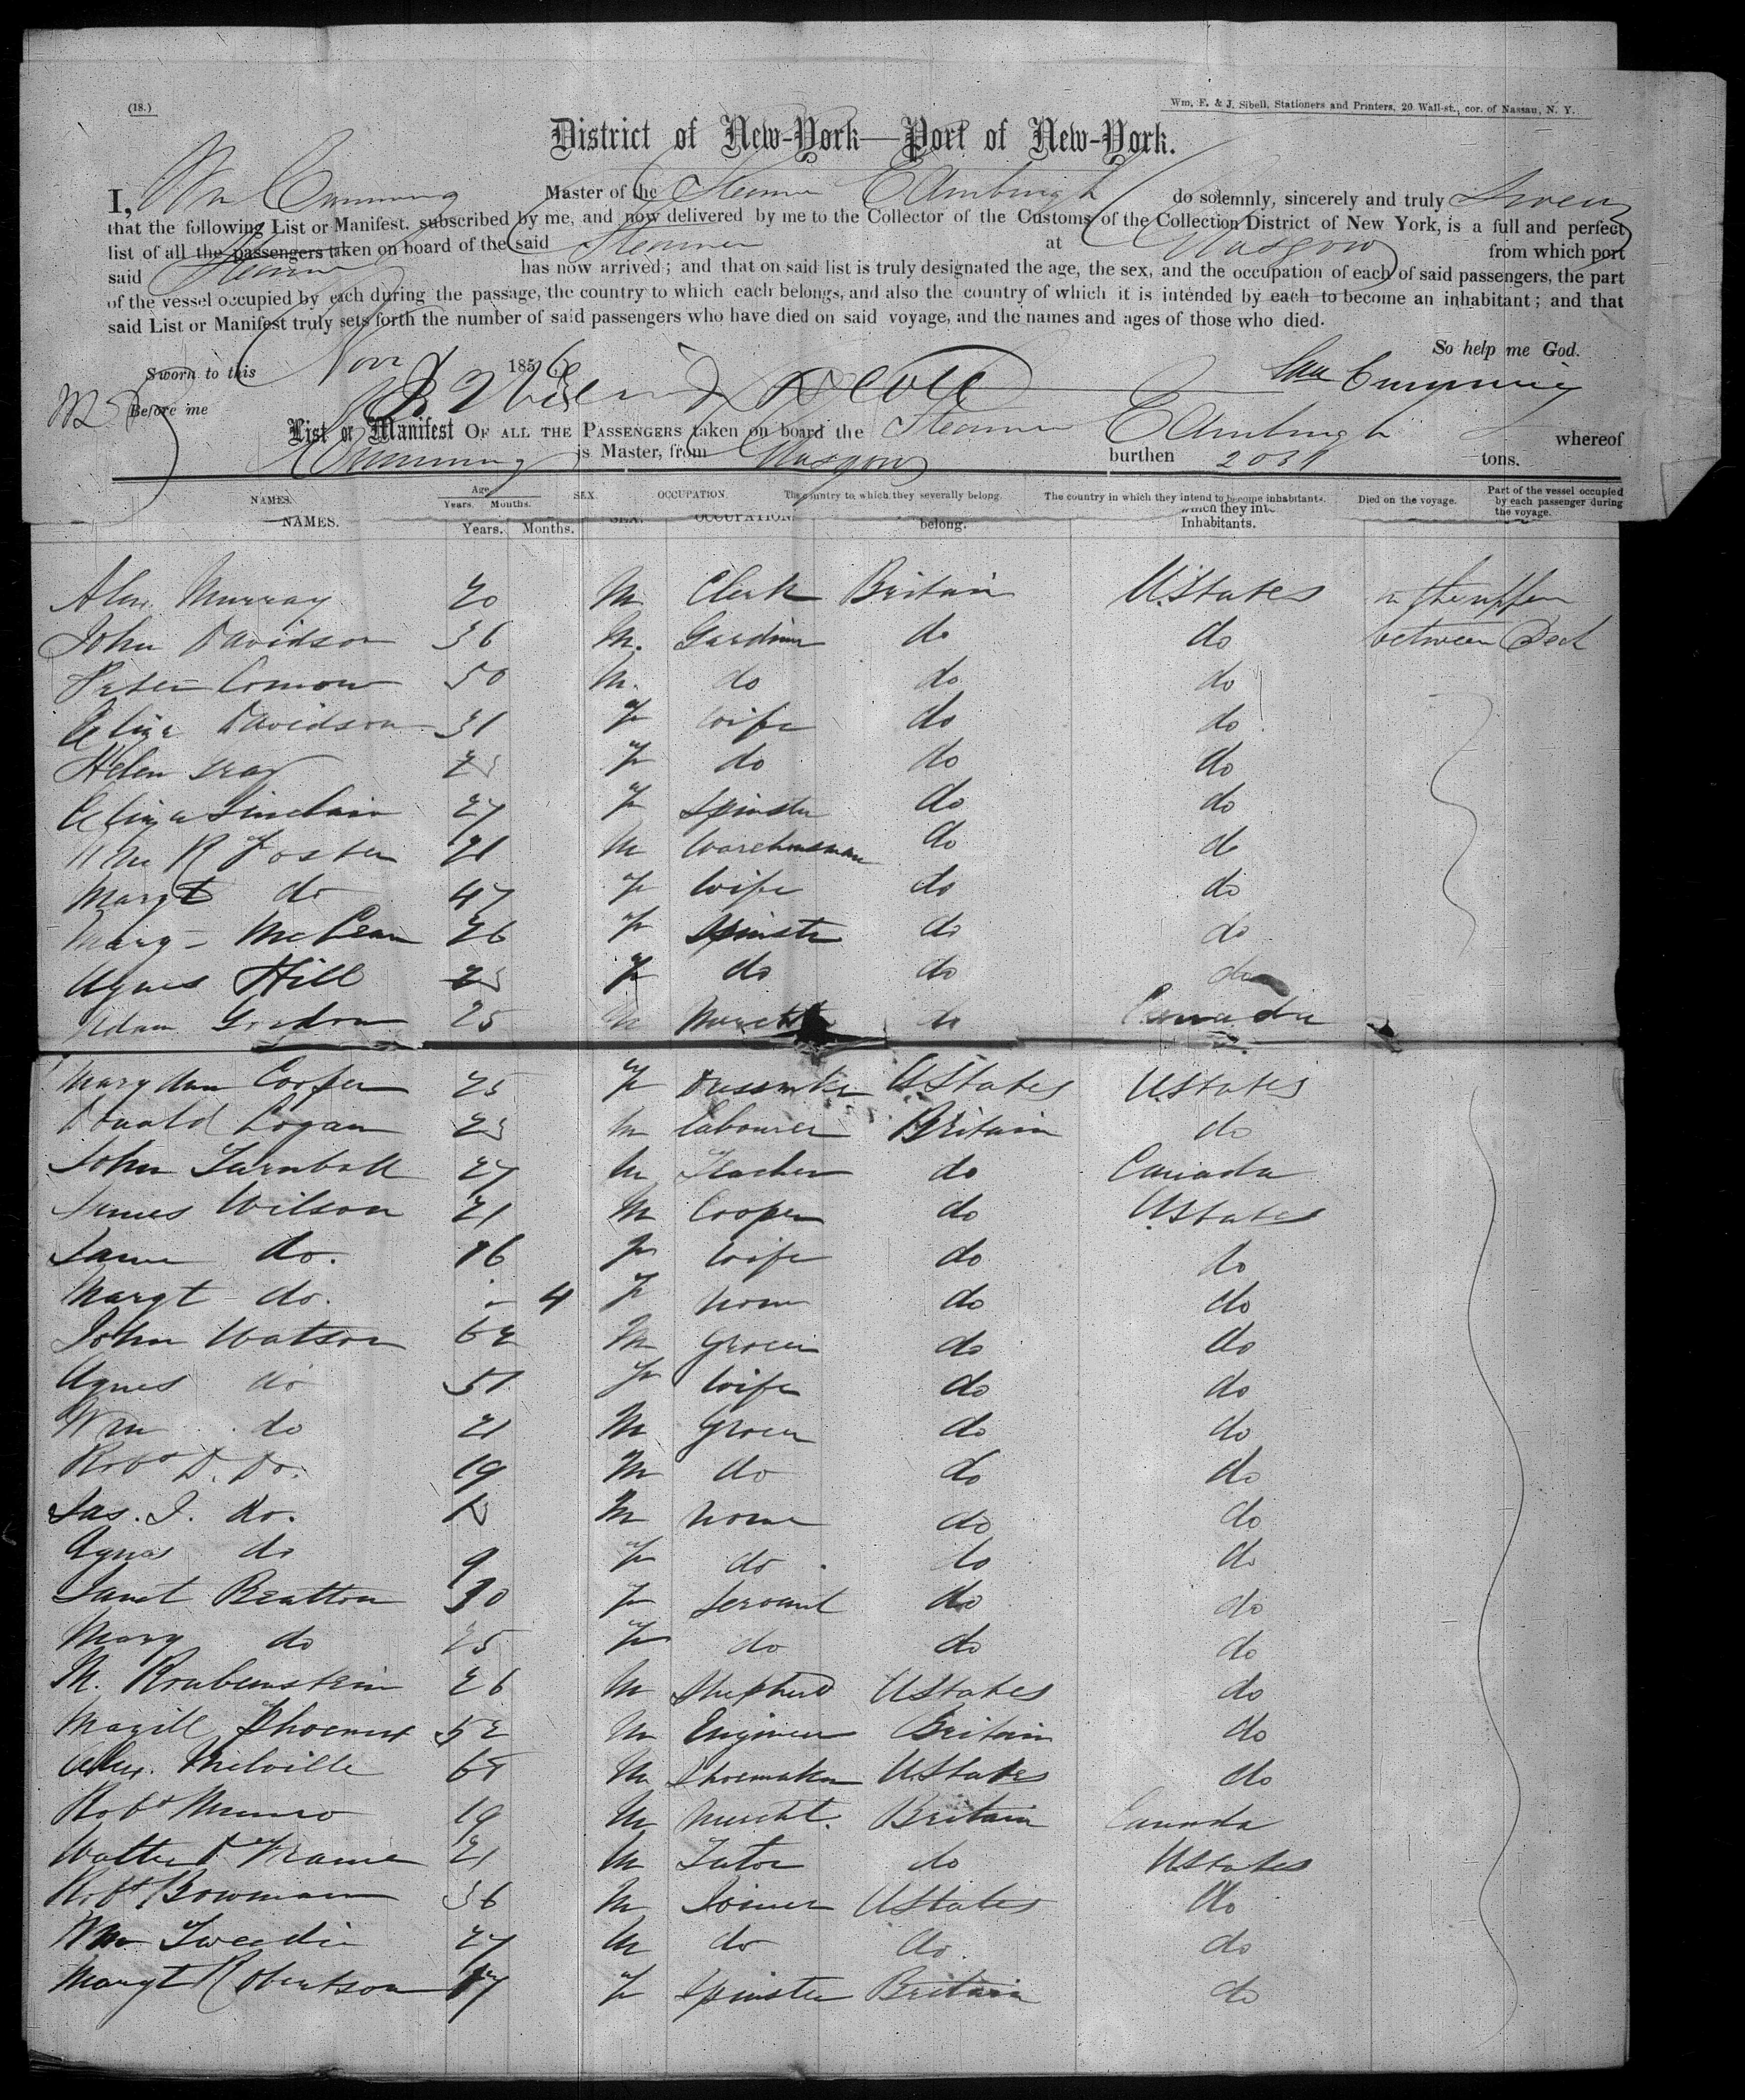 (18.)
Wm. F. & J. Sibell, Stationers and Printers, 20 Wall-st., cor. of Nassau, N. Y.
District of New-York—Port of New-York.
I, Wm Cumming Master of the Steamer Edinburgh do solemnly, sincerely and truly Swear
that the following List or Manifest, subscribed by me, and now delivered by me to the Collector of the Customs of the Collection District of New York, is a full and perfect
list of all the passengers taken on board of the said Steamer at Glasgow from which port
said Steamer has now arrived; and that on said list is truly designated the age, the sex, and the occupation of each of said passengers, the part
of the vessel occupied by each during the passage, the country to which each belongs, and also the country of which it is intended by each to become an inhabitant; and that
said List or Manifest truly sets forth the number of said passengers who have died on said voyage, and the names and ages of those who died.
So help me God.
Sworn to this Nov 1856
Wm Cumming
Before me
List or Manifest OF ALL THE PASSENGERS taken on board the Steamer Edinburgh whereof
Cumming is Master, from Glasgow burthen tons.
NAMES. Age. Years. Months. SEX. OCCUPATION. The country to which they severally belong. The country in which they intend to become inhabitants. Died on the voyage. Part of the vessel occupied by each passenger during the voyage.
NAMES. Years. Months. SEX. OCCUPATION belong. which they inte Inhabitants.
Alex. Murray 20 M Clerk Britain U.States in the upper
John Davidson 36 M. Gardiner do do between Deck
Peter 50 M. do do do
Eliza Davidson 31 F wife do do
Helen Gray 23 F do do do
Eliza Sinclair 27 F Spinster do do
Wm R Foster 21 M Warehouseman do do
Margt do 47 F Wife do do
Mary McLean 26 F Spinster do do
Agnes Hill 23 F do do do
Adam Gordon 25 M Mercht do Canada
Mary Ann Cooper 25 F Dressmker UStates UStates
Donald Logan 23 M Labourer Britain do
John Turnbull 27 M Teacher do Canada
James Wilson 21 M Cooper do UStates
Jane do. 16 F Wife do do
Margt do. - 4 F None do do
John Watson 62 M Grocer do do
Agnes do 51 F Wife do do
Wm do 21 M Grocer do do
Robt D. Do. 19 M do do do
Jas. J. do. 13 M None do do
Agnes do 9 F do do do
Janet Beatton 30 F Servant do do
Mary do 25 F do do do
M. Roubenstein 26 M Shepherd UStates do
Magill 52 M Engineer Britain do
Alex. Melville M Shoemaker UStates do
Robt Munro 19 M Mercht. Britain Canada
Walter D Frame 21 M Tutor do UStates
Robt Bowman 36 M Joiner UStates do
Wm Tweedie 27 M do do. do
Margt Robertson 17 F Spinster Britain do